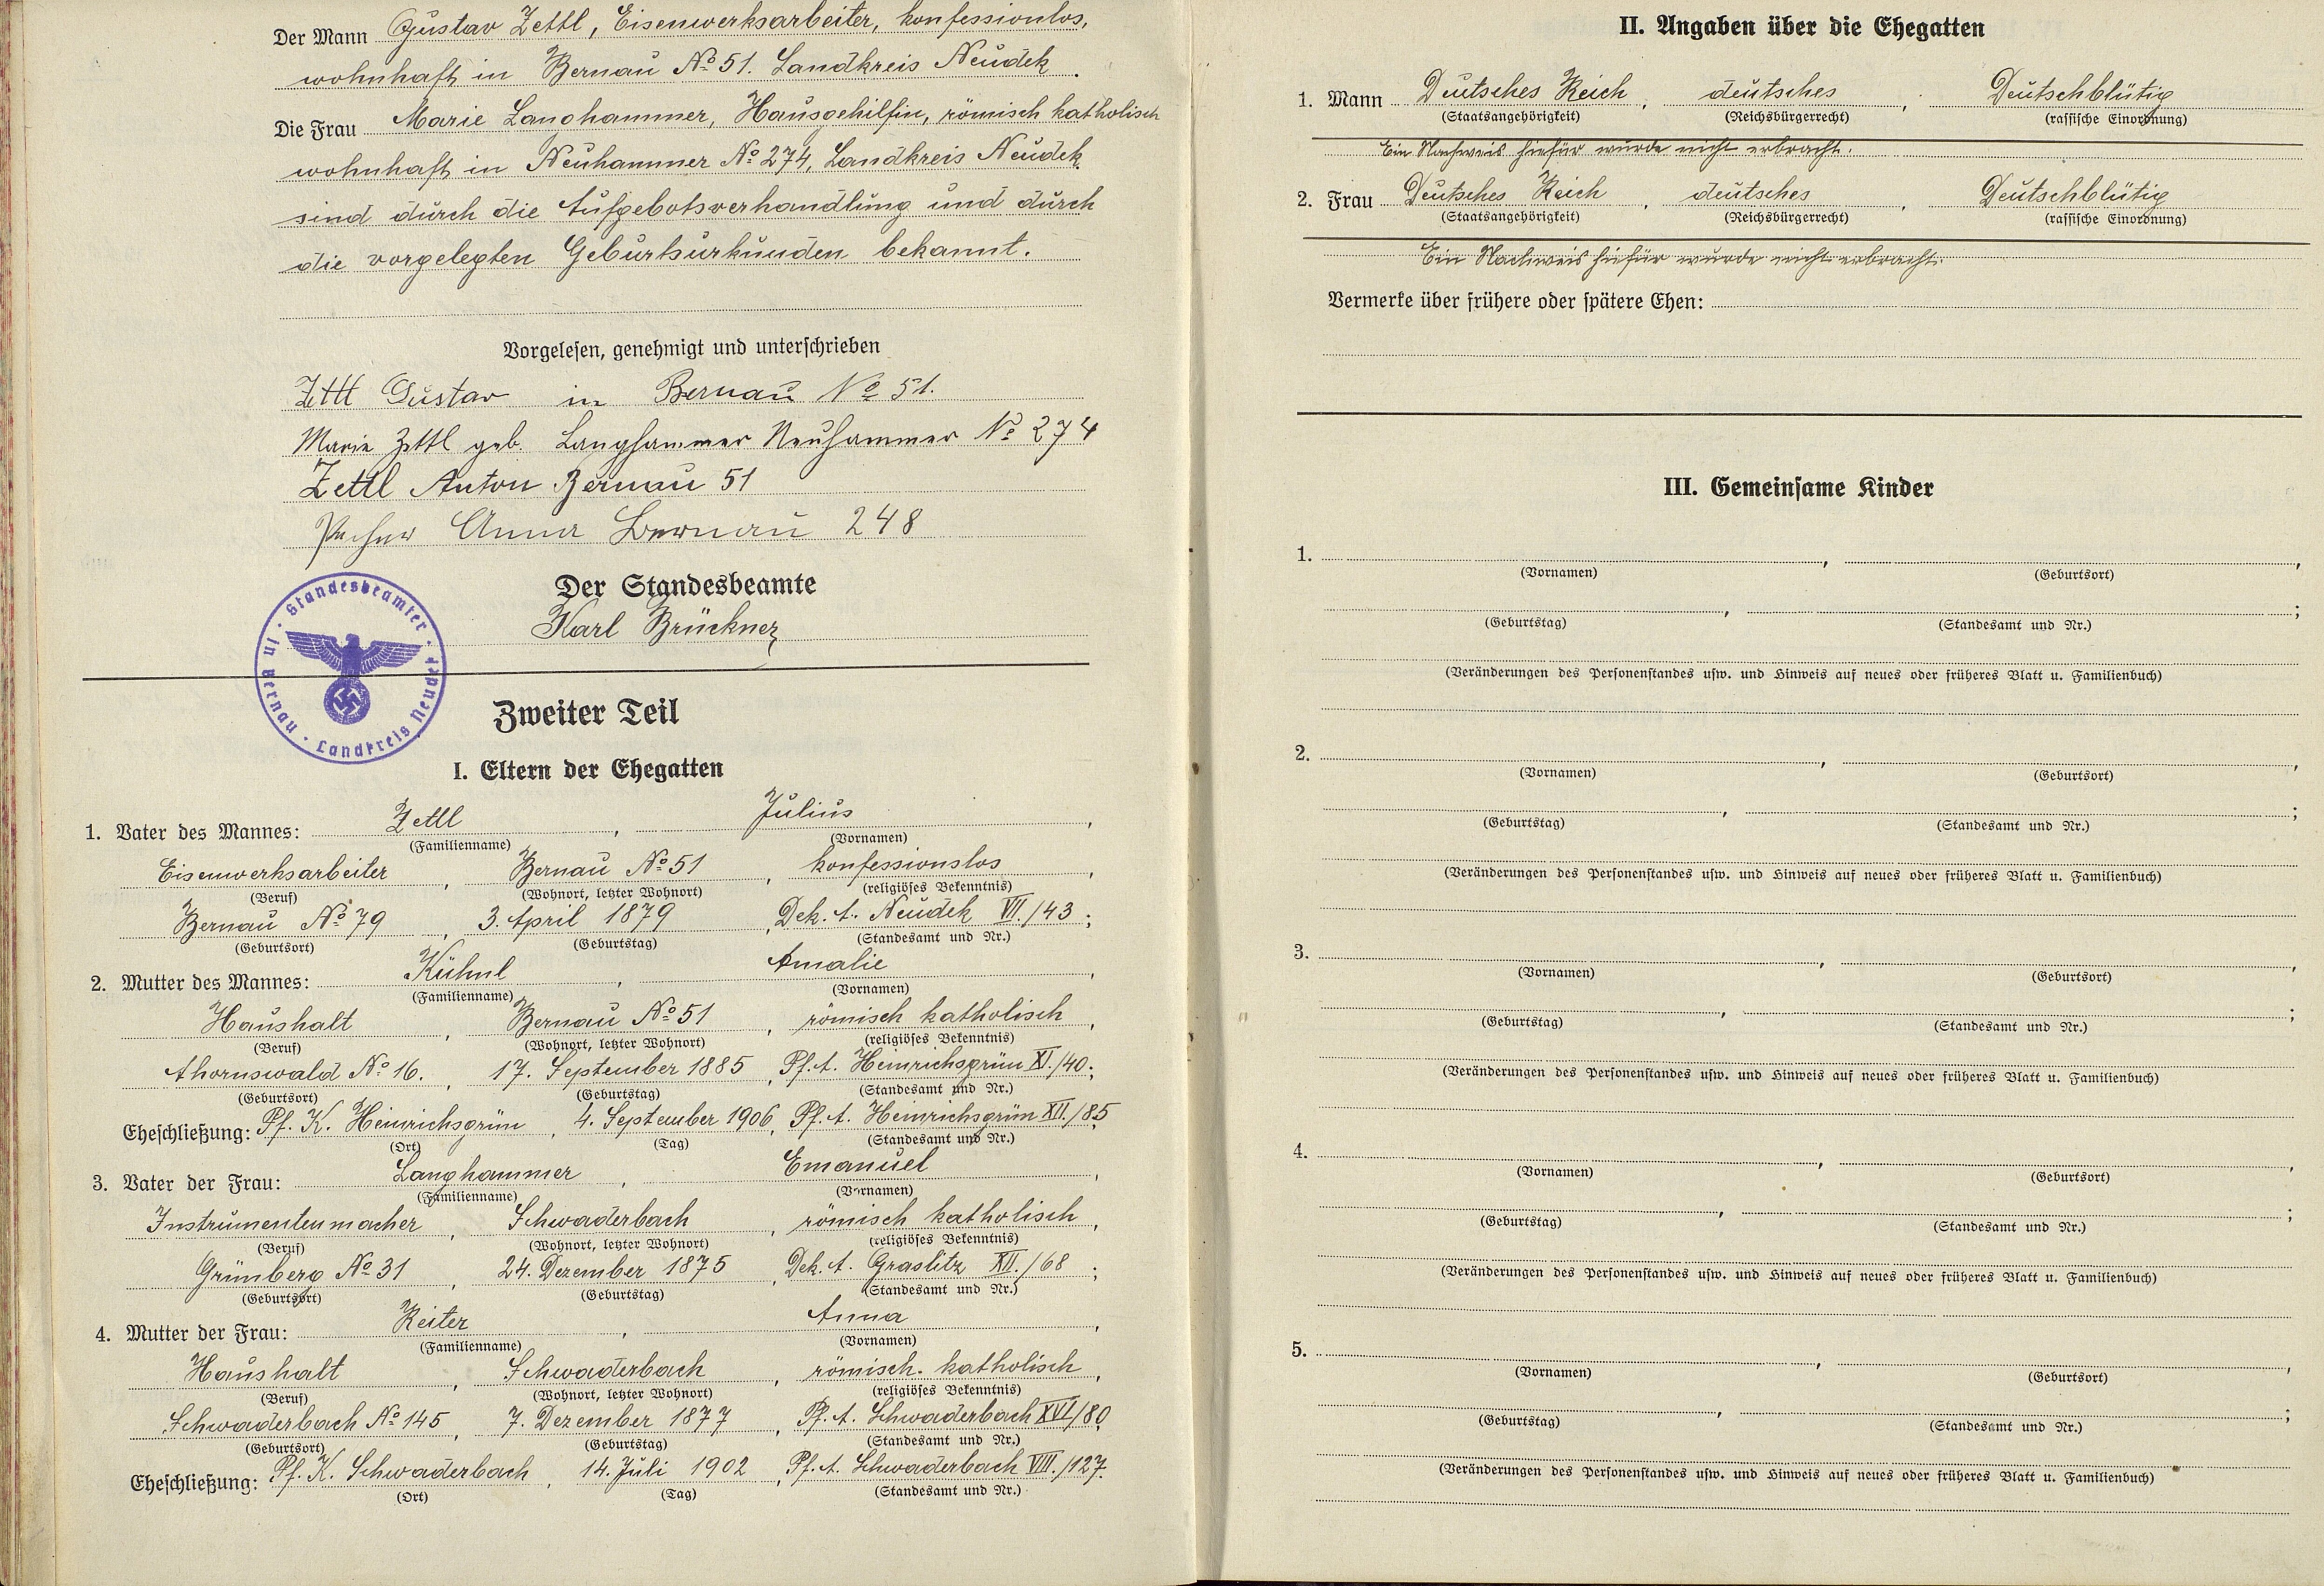 Der Mann Gustav Zettl, Eisenwerksarbeiter, konfessionlos,
wohnhaft in Bernau № 51. Landkreis Neudek.
Die Frau Marie Langhammer, Hausgehilfin, römisch katholisch
wohnhaft in Neuhammer № 274, Landkreis Neudek
sind durch die Aufgebotsverhandlung und durch
die vorgelegten Geburtsurkunden bekannt.
Vorgelesen, genehmigt und unterschrieben
Zettl Gustav in Bernau № 51.
Marie Zettl geb. Langhammer Neuhammer № 274
Zettl Anton Bernau 51
Anna Bernau 248
Der Standesbeamte
Karl Brückner
Standesbeamter · in Bernau · Landkreis Neudek
Zweiter Teil
I. Eltern der Ehegatten
1. Vater des Mannes: Zettl, Julius,
(Familienname) (Vornamen)
Eisenwerksarbeiter, Bernau № 51, konfessionslos,
(Beruf) (Wohnort, letzter Wohnort) (religiöses Bekenntnis)
Bernau № 79, 3. April 1879, Dek. A. Neudek VII./43;
(Geburtsort) (Geburtstag) (Standesamt und Nr.)
2. Mutter des Mannes: Kühnl, Amalie,
(Familienname) (Vornamen)
Haushalt, Bernau № 51, römisch katholisch,
(Beruf) (Wohnort, letzter Wohnort) (religiöses Bekenntnis)
Ahornswald № 16., 17. September 1885, Pf. A. Heinrichsgrün XI./40;
(Geburtsort) (Geburtstag) (Standesamt und Nr.)
Eheschließung: Pf. K. Heinrichsgrün, 4. September 1906, Pf. A. Heinrichsgrün XII./85
(Ort) (Tag) (Standesamt und Nr.)
3. Vater der Frau: Langhammer, Emanuel,
(Familienname) (Vornamen)
Instrumentenmacher, Schwaderbach, römisch katholisch,
(Beruf) (Wohnort, letzter Wohnort) (religiöses Bekenntnis)
Grünberg № 31, 24. Dezember 1875, Dek. A. Graslitz XII./68;
(Geburtsort) (Geburtstag) (Standesamt und Nr.)
4. Mutter der Frau: Reiter, Anna,
(Familienname) (Vornamen)
Haushalt, Schwaderbach, römisch. katholisch,
(Beruf) (Wohnort, letzter Wohnort) (religiöses Bekenntnis)
Schwaderbach № 145, 7. Dezember 1877, Pf. A. Schwaderbach XVI/80
(Geburtsort) (Geburtstag) (Standesamt und Nr.)
Eheschließung: Pf. K. Schwaderbach, 14. Juli 1902, Pf. A. Schwaderbach VIII./127.
(Ort) (Tag) (Standesamt und Nr.)
II. Angaben über die Ehegatten
1. Mann Deutsches Reich, deutsches, Deutschblütig
(Staatsangehörigkeit) (Reichsbürgerrecht) (rassische Einordnung)
Ein Nachweis hiefür wurde nicht erbracht.
2. Frau Deutsches Reich, deutsches, Deutschblütig
(Staatsangehörigkeit) (Reichsbürgerrecht) (rassische Einordnung)
Ein Nachweis hiefür wurde nicht erbracht.
Vermerke über frühere oder spätere Ehen:
III. Gemeinsame Kinder
1. , ,
(Vornamen) (Geburtsort)
, ;
(Geburtstag) (Standesamt und Nr.)
(Veränderungen des Personenstandes usw. und Hinweis auf neues oder früheres Blatt u. Familienbuch)
2. , ,
(Vornamen) (Geburtsort)
, ;
(Geburtstag) (Standesamt und Nr.)
(Veränderungen des Personenstandes usw. und Hinweis auf neues oder früheres Blatt u. Familienbuch)
3. , ,
(Vornamen) (Geburtsort)
, ;
(Geburtstag) (Standesamt und Nr.)
(Veränderungen des Personenstandes usw. und Hinweis auf neues oder früheres Blatt u. Familienbuch)
4. , ,
(Vornamen) (Geburtsort)
, ;
(Geburtstag) (Standesamt und Nr.)
(Veränderungen des Personenstandes usw. und Hinweis auf neues oder früheres Blatt u. Familienbuch)
5. , ,
(Vornamen) (Geburtsort)
, ;
(Geburtstag) (Standesamt und Nr.)
(Veränderungen des Personenstandes usw. und Hinweis auf neues oder früheres Blatt u. Familienbuch)